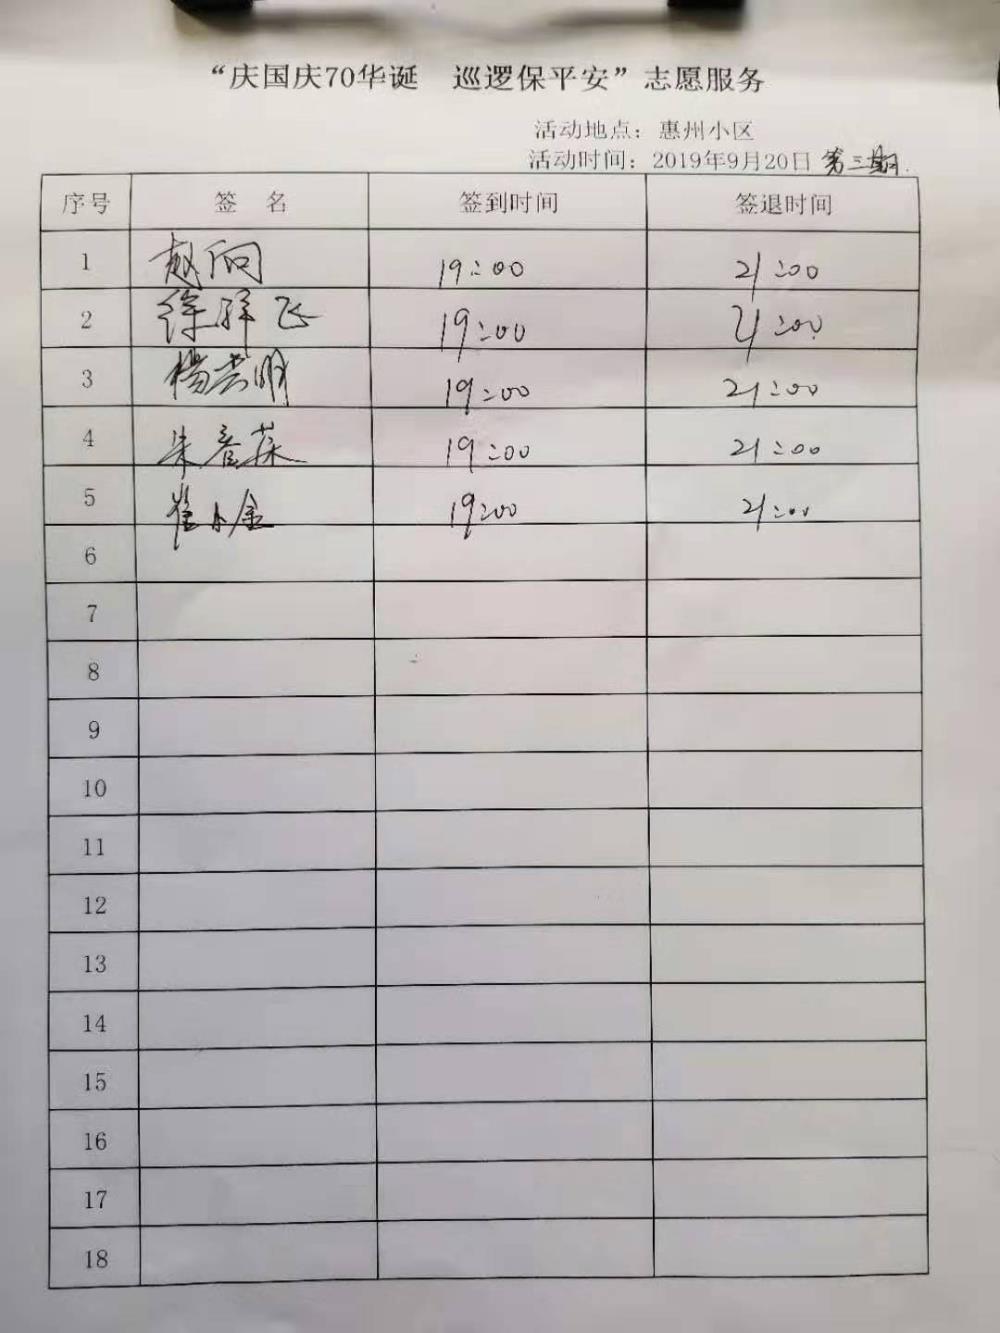 “庆国庆70华诞 巡逻保平安”志愿服务
活动地点：惠州小区
活动时间：2019年9月20日 第三期
序号 签 名 签到时间 签退时间
1 赵向 19:00 21:00
2 徐祥飞 19:00 21:00
3 杨 明 19:00 21:00
4 朱 19:00 21:00
5 崔小金 19:00 21:00
6
7
8
9
10
11
12
13
14
15
16
17
18